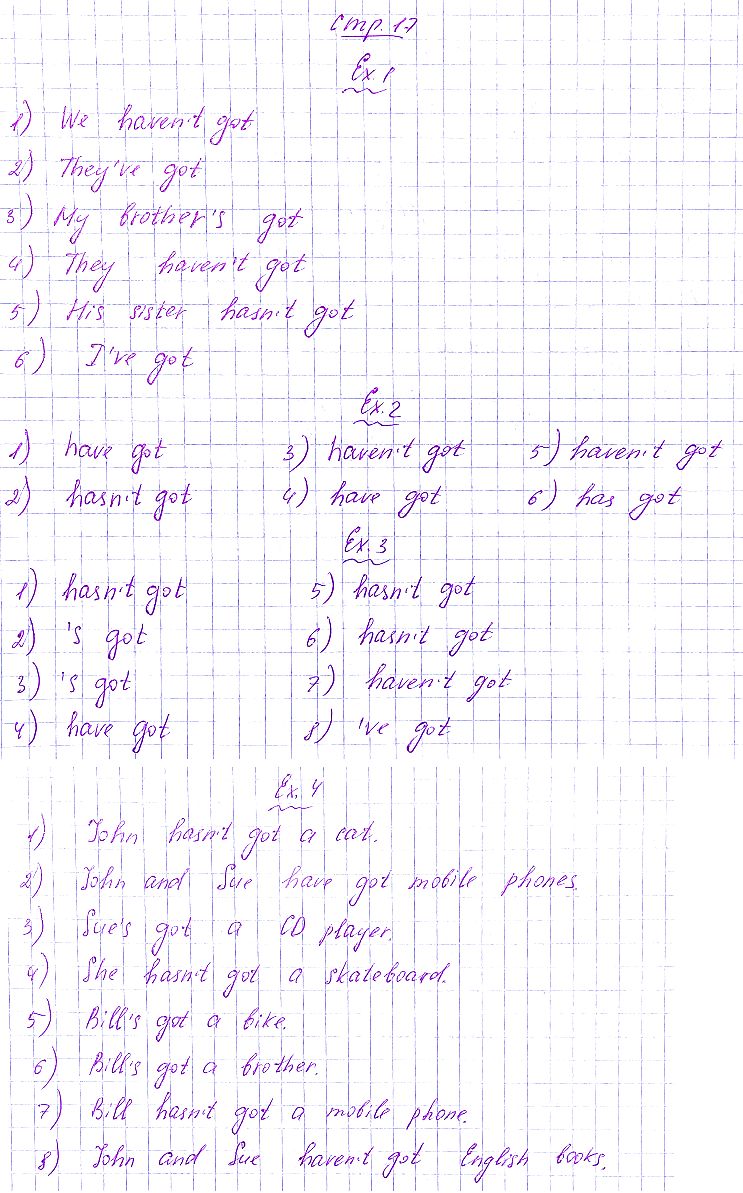 Стр. 17
Ex. 1
1) We haven't got
2) They've got
3) My brother's got
4) They haven't got
5) His sister hasn't got
6) I've got
Ex. 2
1) have got 3) haven't got 5) haven't got
2) hasn't got 4) have got 6) has got
Ex. 3
1) hasn't got 5) hasn't got
2) 's got 6) hasn't got
3) 's got 7) haven't got
4) have got 8) 've got
Ex. 4
1) John hasn't got a cat.
2) John and Sue have got mobile phones.
3) Sue's got a CD player.
4) She hasn't got a skateboard.
5) Bill's got a bike.
6) Bill's got a brother.
7) Bill hasn't got a mobile phone.
8) John and Sue haven't got English books.